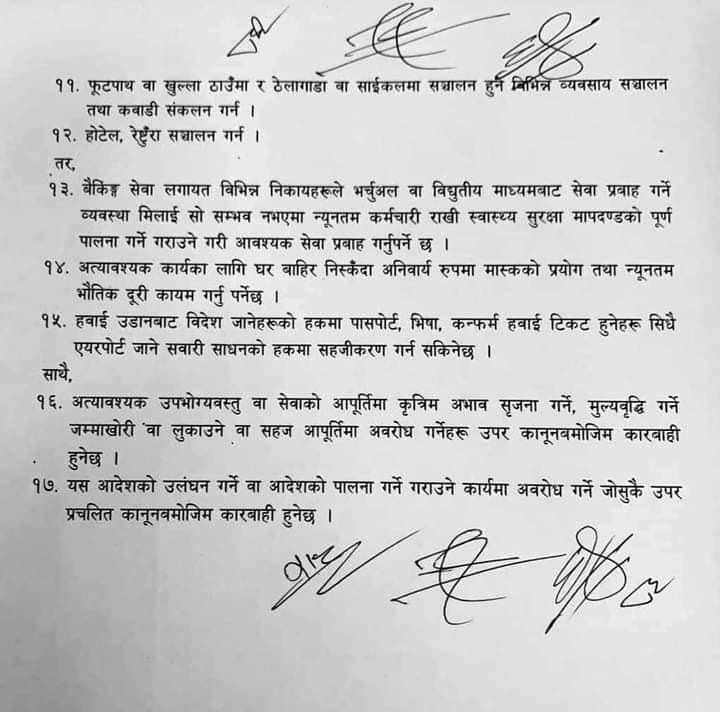 ११. फूटपाथ वा खुल्ला ठाउँमा र ठेलागाडा वा साईकलमा सञ्चालन हुने विभिन्न व्यवसाय सञ्चालन
तथा कवाडी संकलन गर्न ।
१२. होटेल, रेष्टुँरा सञ्चालन गर्न ।
तर,
१३. बैकिङ्ग सेवा लगायत विभिन्न निकायहरूले भर्चुअल वा विधुतीय माध्यमबाट सेवा प्रवाह गर्ने
व्यवस्था मिलाई सो सम्भव नभएमा न्यूनतम कर्मचारी राखी स्वास्थ्य सुरक्षा मापदण्डको पूर्ण
पालना गर्ने गराउने गरी आवश्यक सेवा प्रवाह गर्नुपर्ने छ ।
१४. अत्यावश्यक कार्यका लागि घर बाहिर निस्कँदा अनिवार्य रुपमा मास्कको प्रयोग तथा न्यूनतम
भौतिक दूरी कायम गर्नु पर्नेछ ।
१५. हवाई उडानबाट विदेश जानेहरूको हकमा पासपोर्ट, भिषा, कन्फर्म हवाई टिकट हुनेहरू सिधै
एयरपोर्ट जाने सवारी साधनको हकमा सहजीकरण गर्न सकिनेछ ।
साथै,
१६. अत्यावश्यक उपभोग्यवस्तु वा सेवाको आपूर्तिमा कृत्रिम अभाव सृजना गर्ने, मुल्यवृद्धि गर्ने
जम्माखोरी वा लुकाउने वा सहज आपूर्तिमा अवरोध गर्नेहरू उपर कानूनबमोजिम कारबाही
हुनेछ ।
१७. यस आदेशको उलंघन गर्ने वा आदेशको पालना गर्ने गराउने कार्यमा अवरोध गर्ने जोसुकै उपर
प्रचलित कानूनबमोजिम कारबाही हुनेछ ।